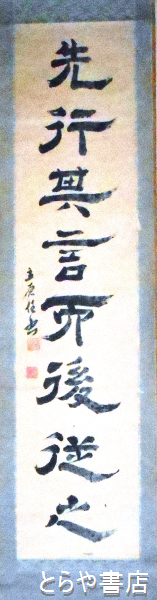 先行其言而後従之
とらや書店